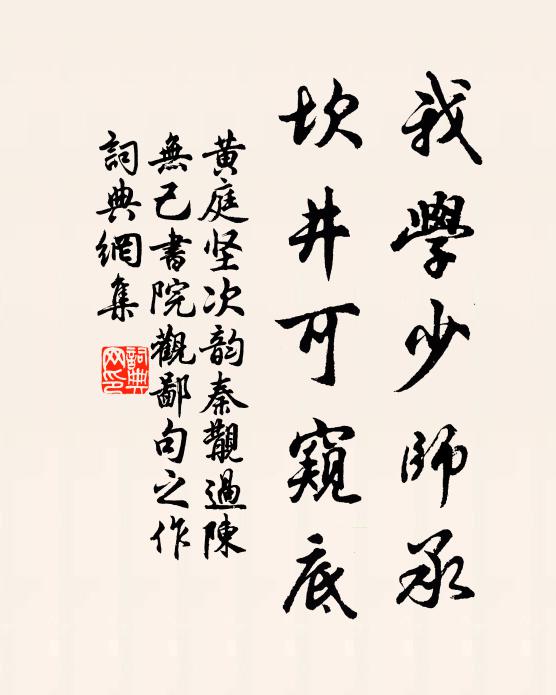 我學少師承
坎井可窺底
黃庭坚次韵秦覯過陳
無己書院觀鄙句之作
詞典網集
詞典
网印